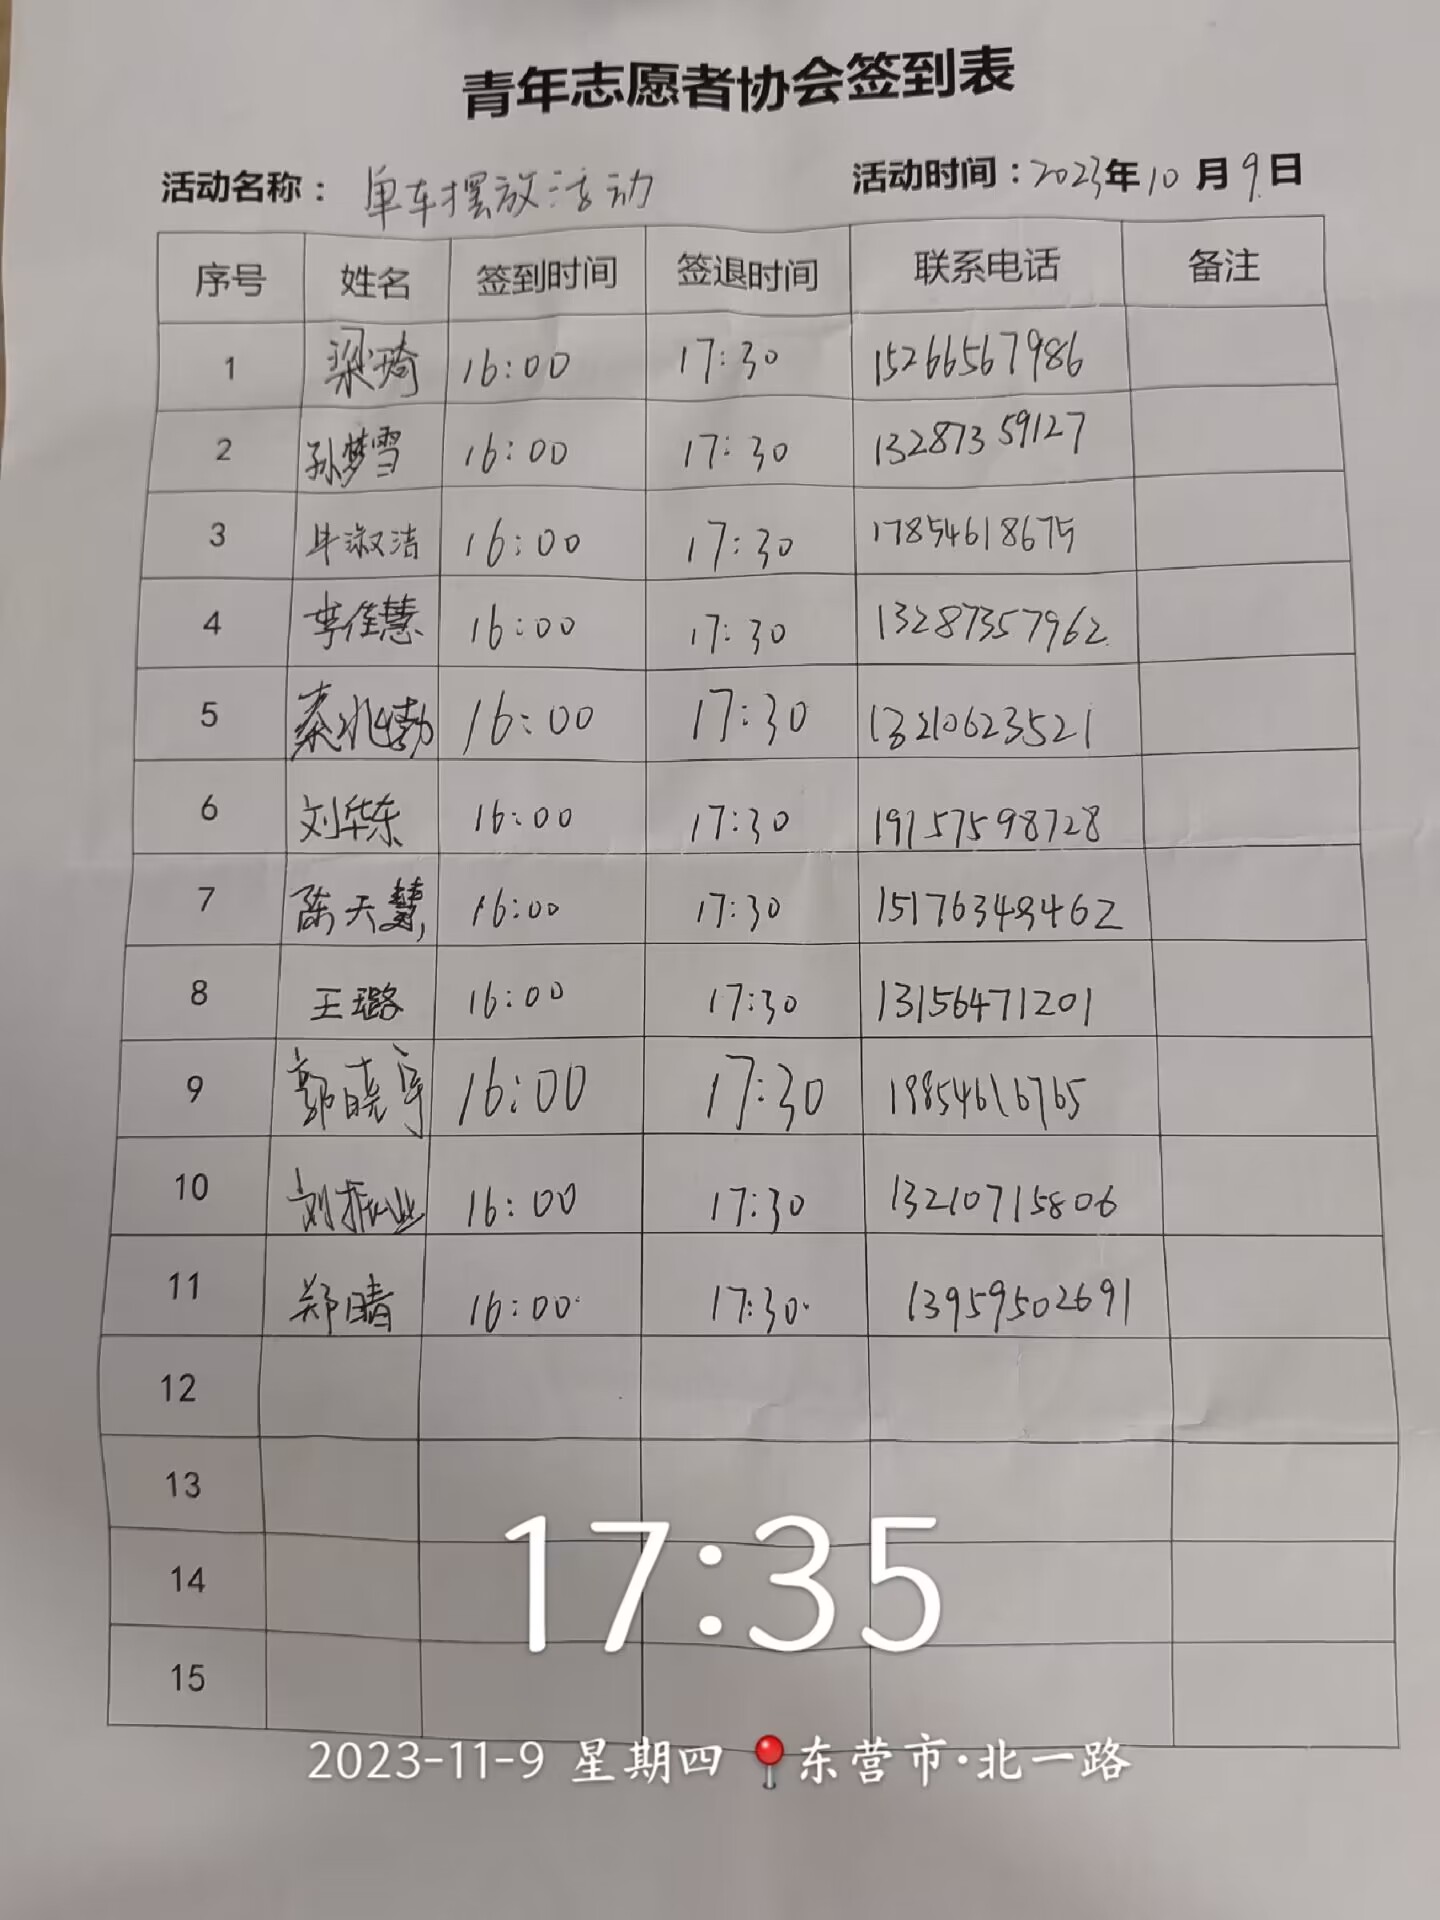 青年志愿者协会签到表
活动名称：单车摆放活动 活动时间：2023年10月9日
序号 姓名 签到时间 签退时间 联系电话 备注
1 梁琦 16:00 17:30 15266567986
2 孙梦雪 16:00 17:30 13287359127
3 牛淑洁 16:00 17:30 17854618675
4 李佳慧 16:00 17:30 13287357962
5 秦兆勃 16:00 17:30 13210623521
6 刘华东 16:00 17:30 19157598728
7 陈天慧 16:00 17:30 15176348462
8 王璐 16:00 17:30 13156471201
9 郭晓 16:00 17:30 19854616765
10 刘振业 16:00 17:30 13210715806
11 郑晴 16:00 17:30 13959502691
12
13
14
15
17:35
2023-11-9 星期四 东营市·北一路